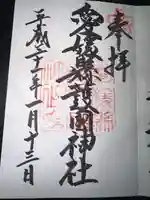 奉拝
愛媛縣護國神社
平成二十三年一月十三日